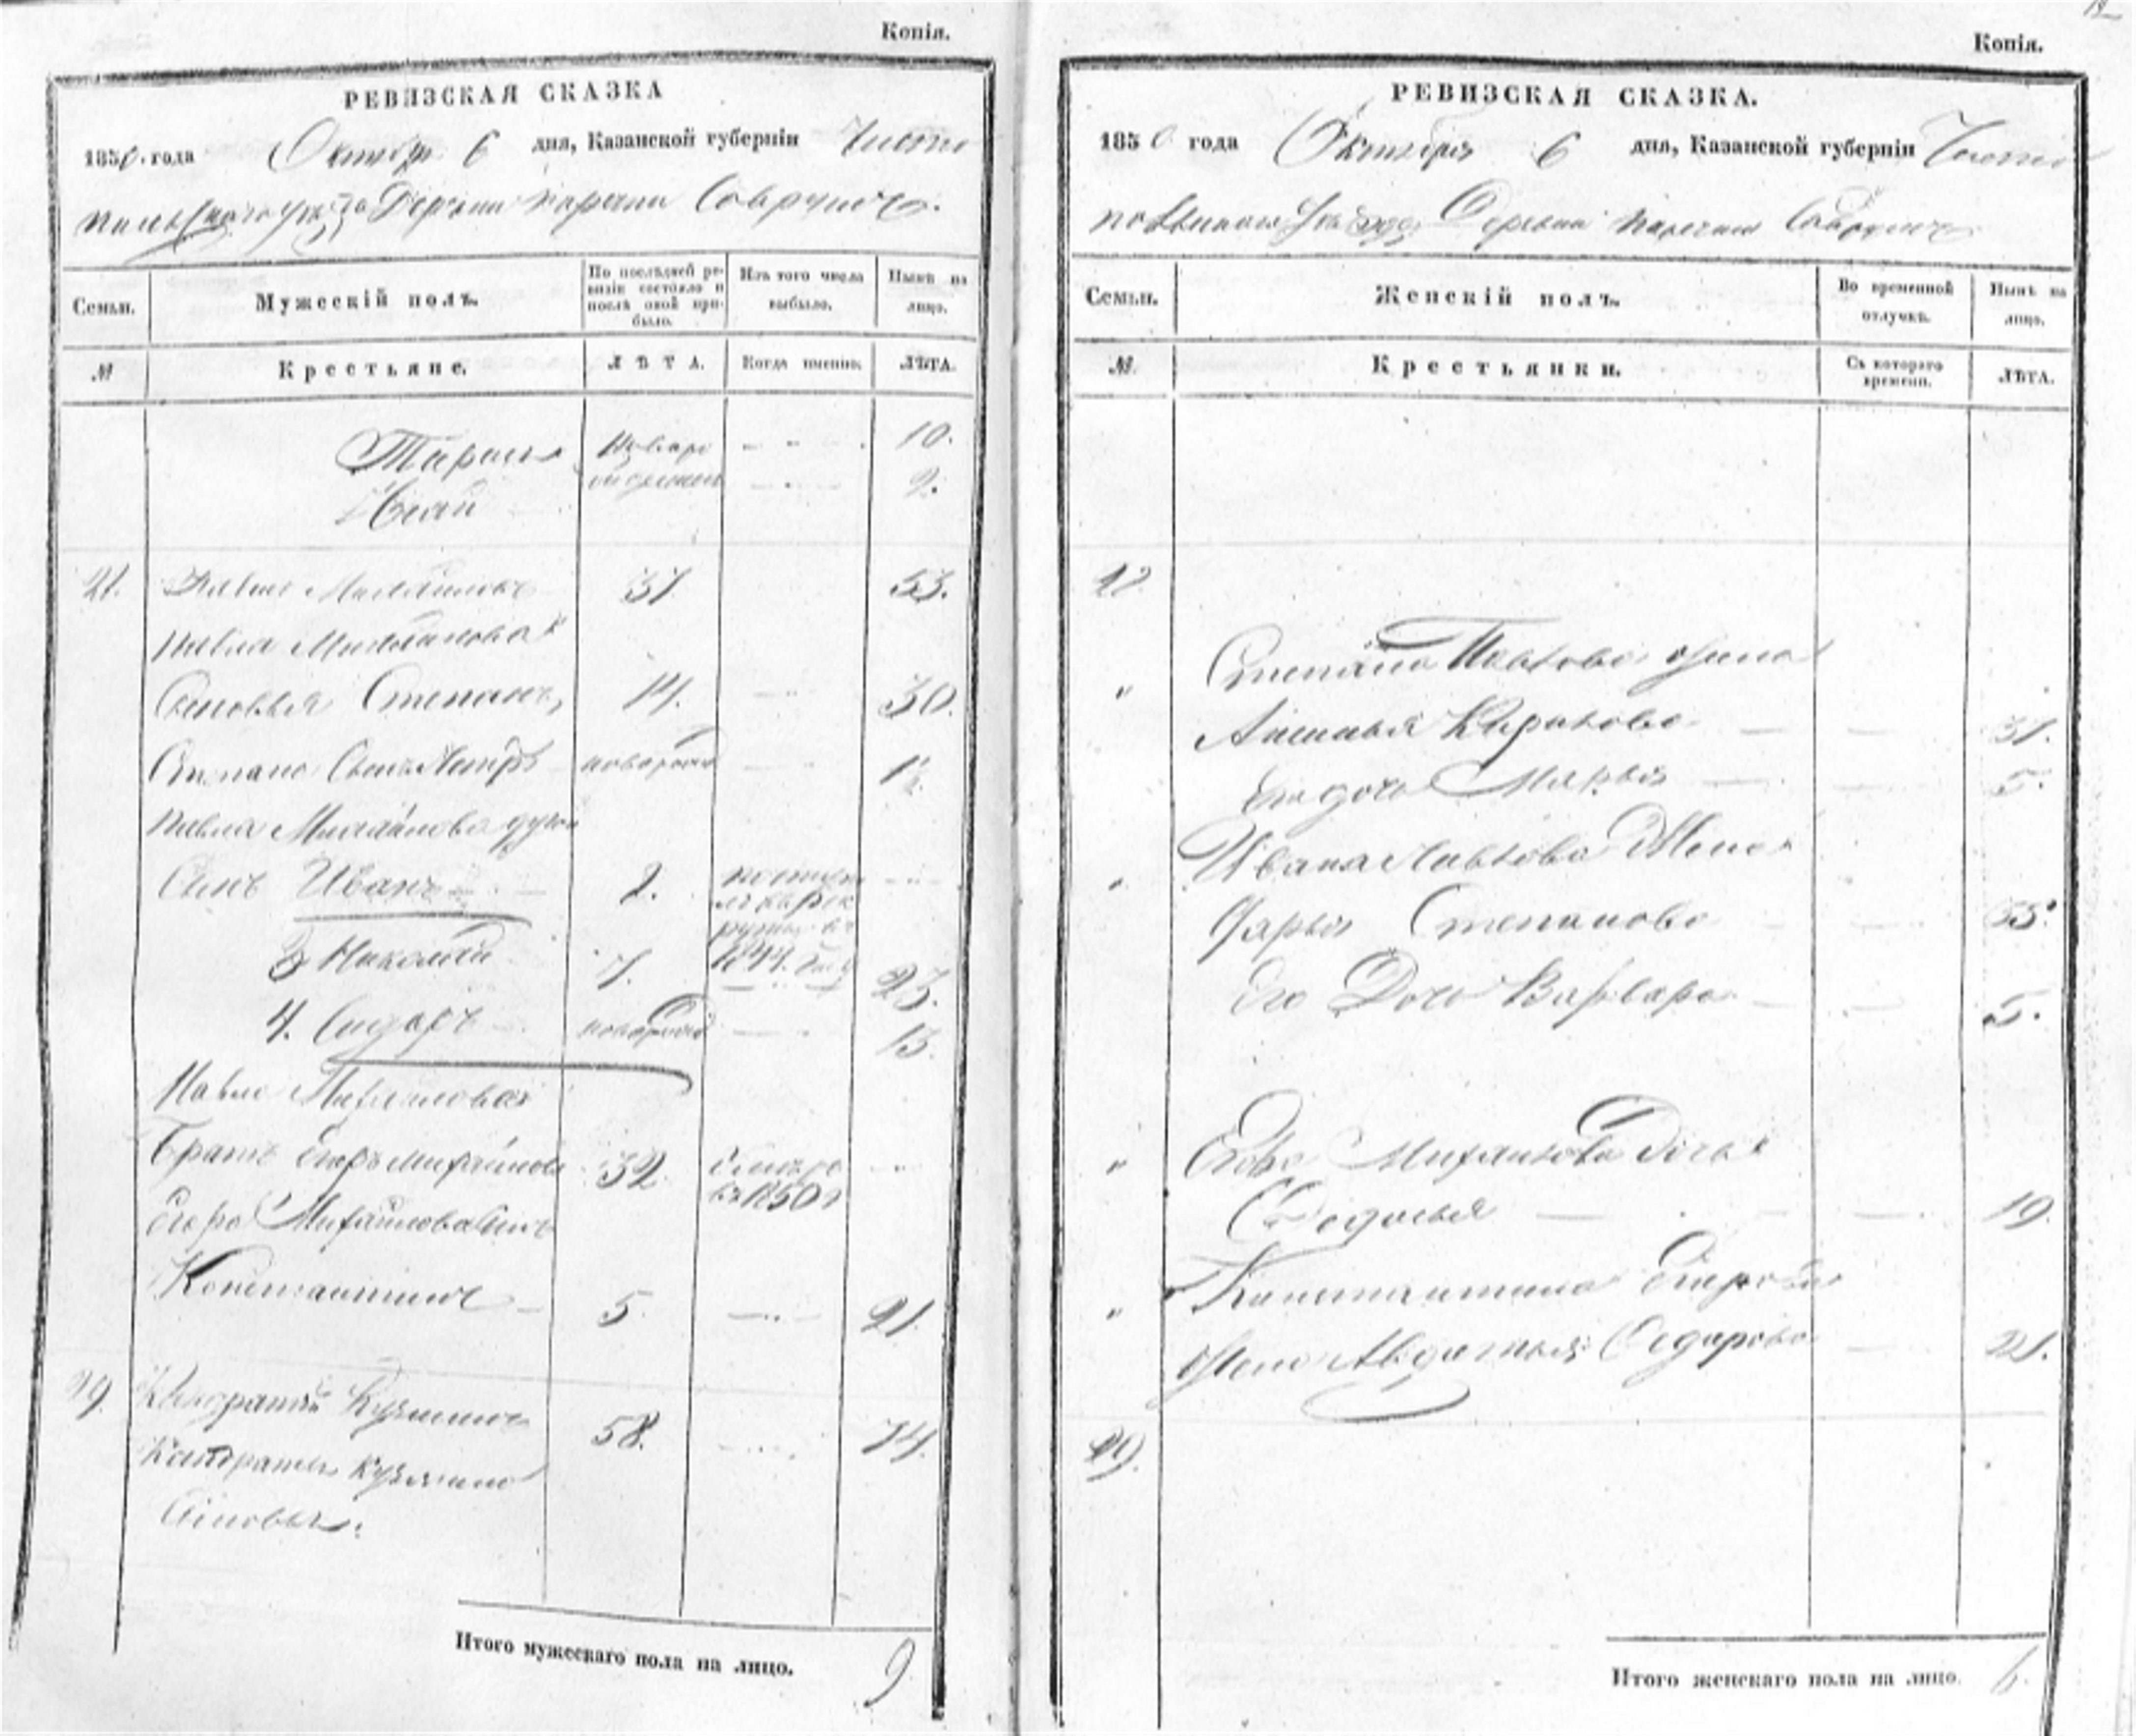 Копія.
РЕВИЗСКАЯ СКАЗКА
1850 года Октября 6 дня, Казанской губерніи Чисто
польскаго уѣзда Деревни
Семьи.
Мужескій полъ.
По послѣдней ре-
визіи состояло и
послѣ оной при-
было.
Изъ того числа
выбыло.
Нынѣ на
лицо.
№
Крестьяне.
ЛѢТА.
Когда именно.
ЛѢТА.
Тарасъ 10.
Исай 2.
21. Павелъ Михайловъ 37. 53.
Павла Михайлова
Сыновья Степанъ, 14. 30.
Степана Сынъ Петръ новорожд 1½
Павла Михайлова другой
Сынъ Иванъ 2. поступи
лъ въ рек
руты въ
1844. году
3 Николай 7. 23.
4. Сидоръ новорожд 13.
Павла Михайлова
Братъ Егоръ Михайловъ 32 умеръ
въ 1850 г
Егора Михайлова Сынъ
Константинъ 5. 21.
29. Кандратій Кузминъ 58. 74.
Кандратья Кузмина
Сыновья:
Итого мужескаго пола на лицо. 9
Копія.
РЕВИЗСКАЯ СКАЗКА.
1850 года Октября 6 дня, Казанской губерніи Чисто
польскаго уѣзда Деревни
Семьи.
Женскій полъ.
Во временной
отлучкѣ.
Нынѣ на
лицо.
№.
Крестьянки.
Съ котораго
времени.
ЛѢТА.
Степана Павлова жена
Кирилова 31.
Его дочь Марья 5.
Ивана Павлова Жена
Дарья Степанова
Его Дочь Варвара 5.
Егора Михайлова Дочь
Федосья 19.
Константина Егорова
жена Авдотья Сидорова 21.
29.
Итого женскаго пола на лицо. 6.